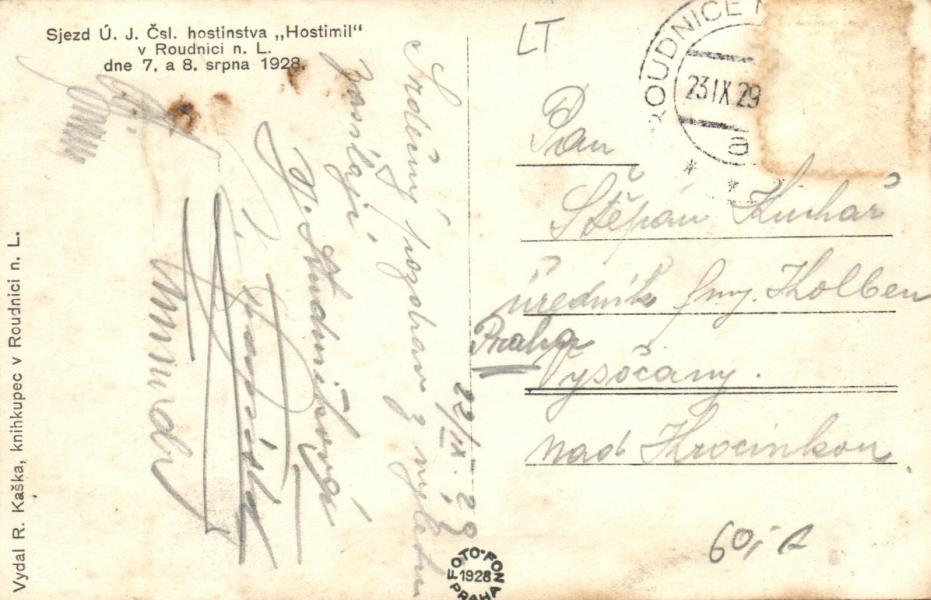 Sjezd Ú. J. Čsl. hostinstva „Hostimil“
v Roudnici n. L.
dne 7. a 8. srpna 1928.
LT
ROUDNICE N
23 IX 29
Pan
Štěpán Kuchař
úředník fmy. Kolben
Praha
Vysočany.
nad Krocínkou
60,-
Srdečný pozdrav z výletu
zasílají
22/IX. 29
FOTO-FON
1928
PRAHA
Vydal R. Kaška, knihkupec v Roudnici n. L.